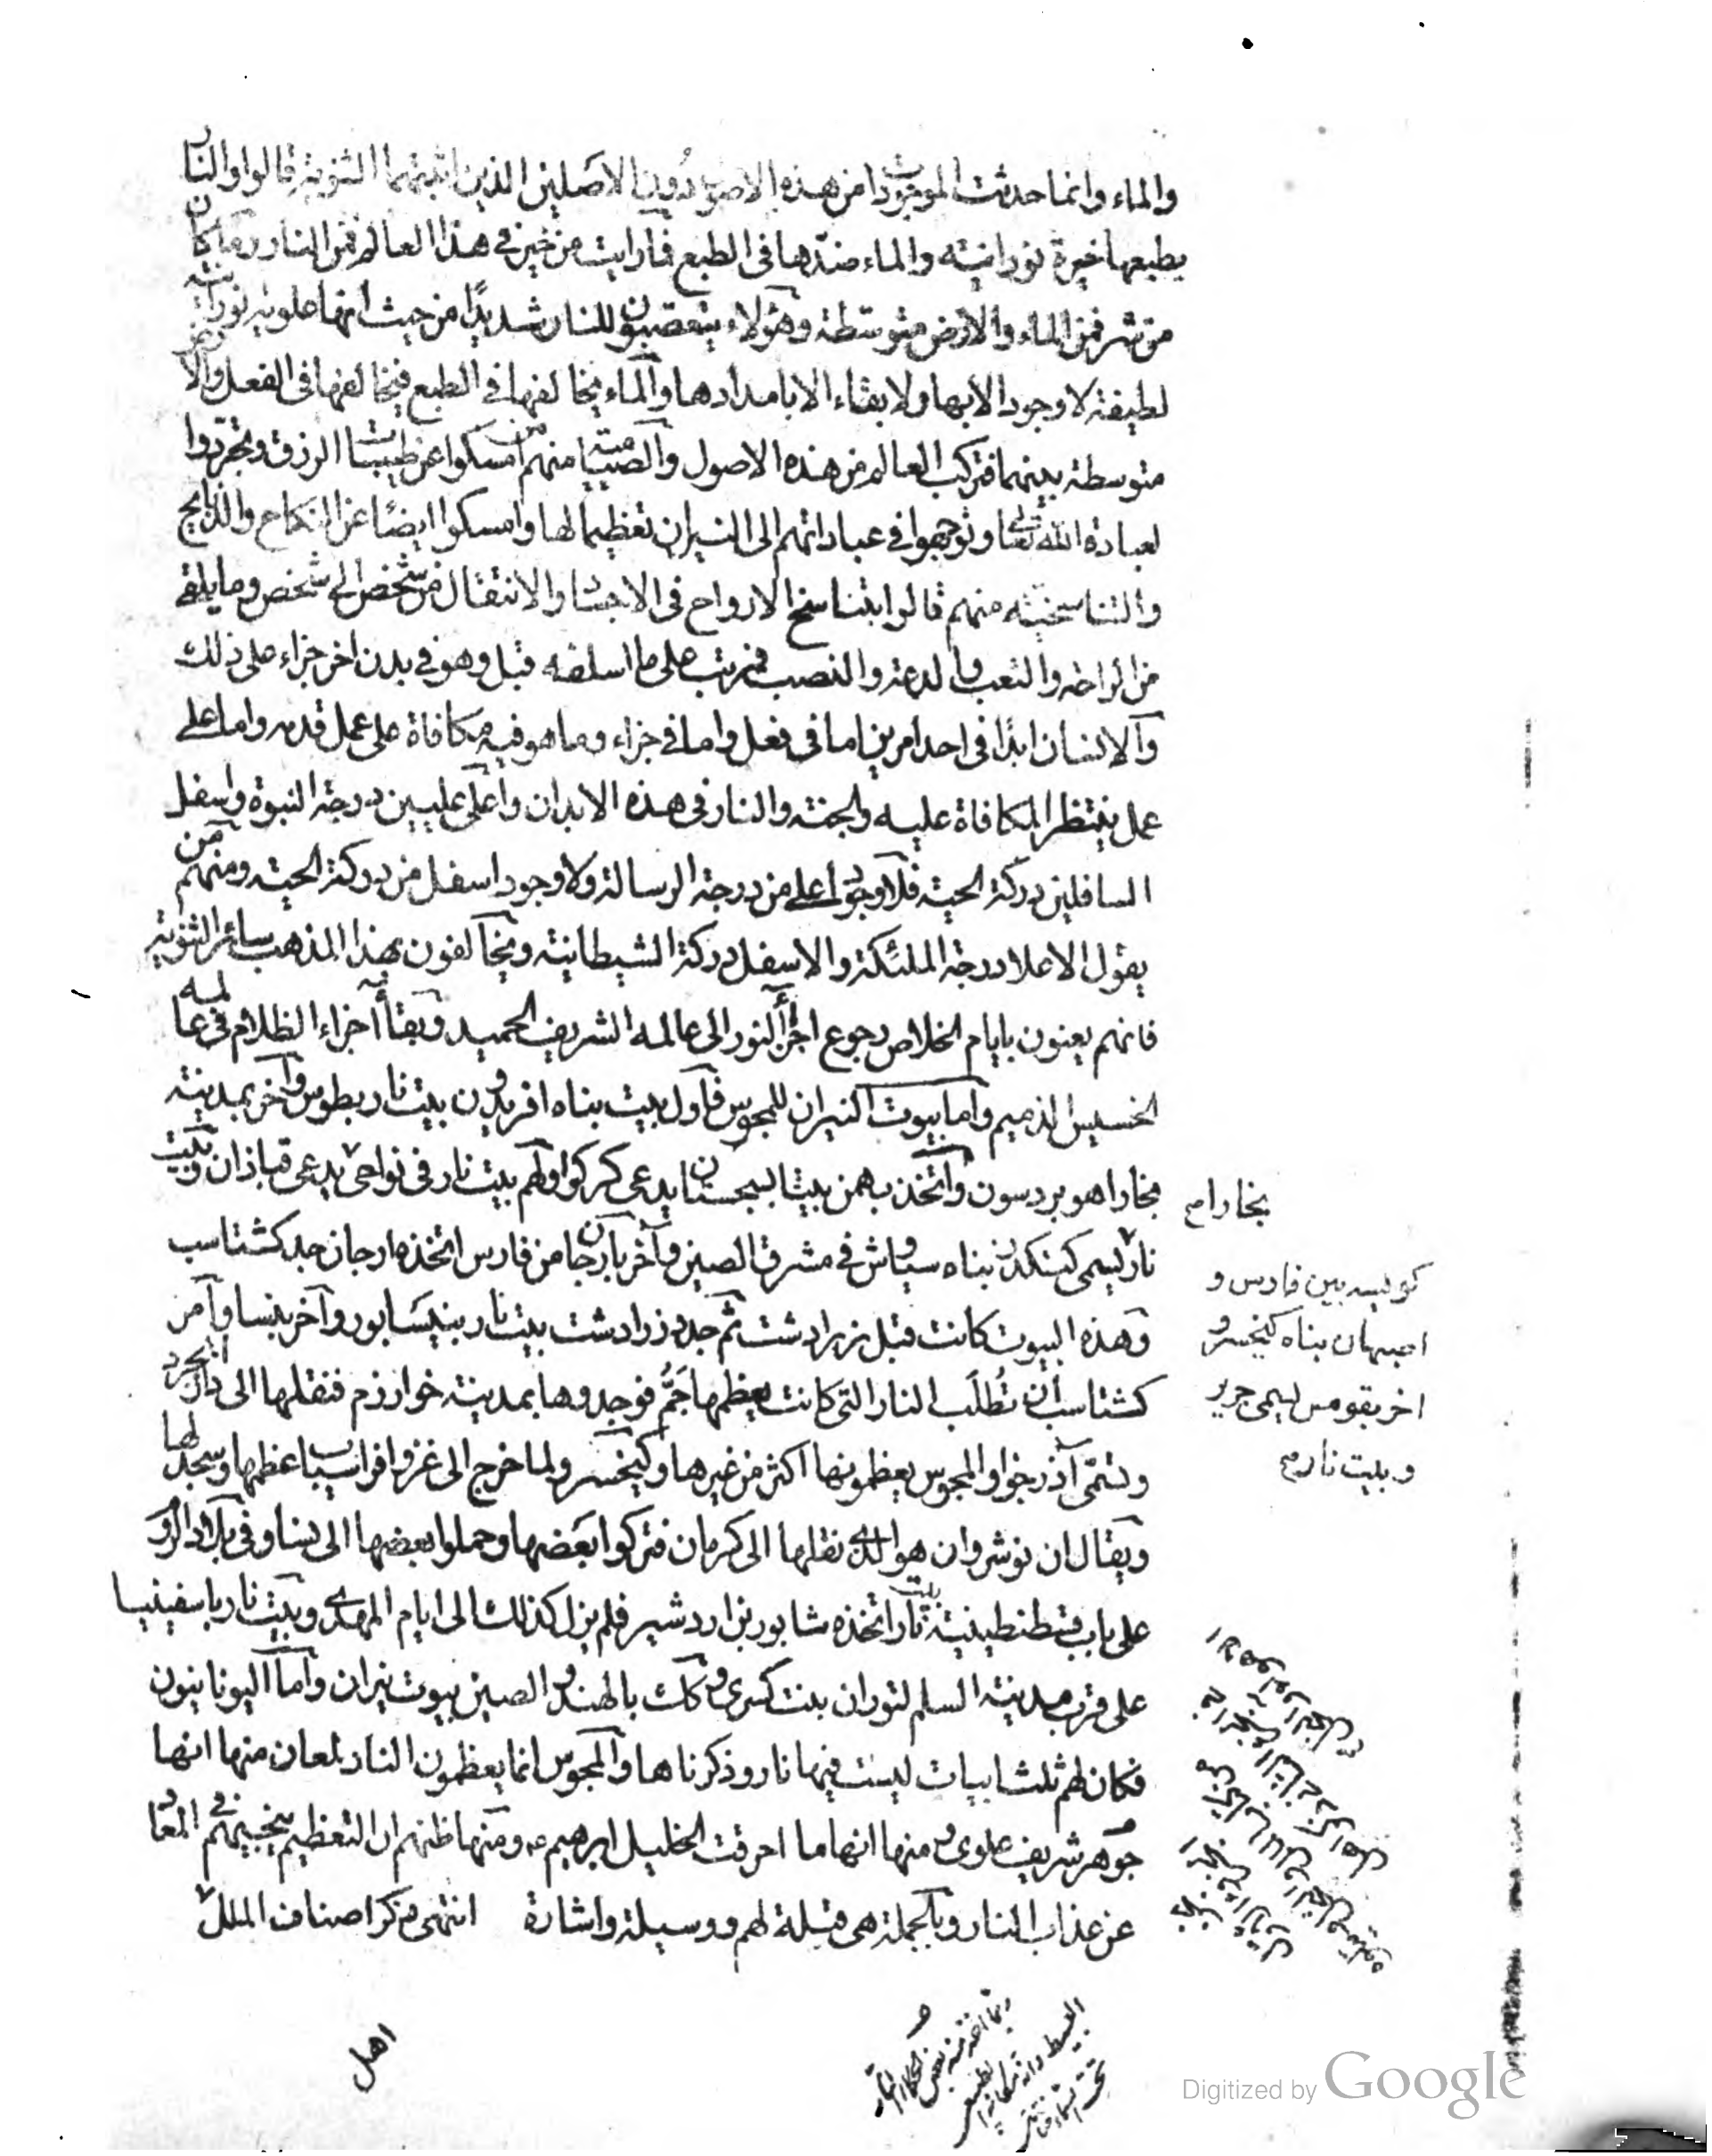 والماء وانما حدثت الموجودات من هذه الاصول دون الاصلين الذين اثبتهما الثنوية قالوا والنار
بطبعها خيرة نورانية والماء ضدها فى الطبع فما رايت من خير فى هذا العالم فمن النار وما كان
من شر فمن الماء والارض متوسطة وهؤلاء يتعصبون للنار شديدًا من حيث انها علوية نورانية
لطيفة لا وجود الا بها ولا بقاء الا بامدادها والماء يخالفها فى الطبع فيخالفها فى الفعل والارض
متوسطة بينهما فتركب العالم من هذه الاصول والصيامية منهم من امسكوا عن طيبات الرزق وتجردوا
لعبادة الله تعالى وتوجهوا فى عباداتهم الى النيران تعظيما لها وامسكوا ايضًا عن النكاح والذبايح
والتناسخية منهم قالوا بتناسخ الارواح فى الاجساد والانتقال من شخص الى شخص وما يلقى
من الراحة والتعب والدعة والنصب فمرتب على ما اسلفه قبل وهو فى بدن اخر جزاء على ذلك
والانسان ابدًا فى احد امرين اما فى فعل واما فى جزاء وما هو فيه مكافاة على عمل قدمه واما على
عمل ينتظر المكافاة عليه والجنة والنار فى هذه الابدان واعلى عليين درجة النبوة واسفل
السافلين دركة الحية فلا وجود اعلى من درجة الرسالة ولا وجود اسفل من دركة الحية ومنهم من
يقول الاعلا درجة الملئكة والاسفل دركة الشيطانية ويخالفون بهذا المذهب سائر الثنوية
فانهم يعنون بايام الخلاص رجوع اجزاء النور الى عالمه الشريف الحميد وبقاء اجزاء الظلام فى عالمه
الخسيس الذميم واما بيوت النيران للمجوس فاول بيت بناه افريدون بيت نار بطوس وآخر بمدينة
بخارا هو بردسون واتخذ بهمن بيتا بسجستان يدعى كركوا ولهم بيت نار فى نواحى يدعى قباذان وبيت
بخارا م
نار يسمى كنكدز بناه سياوش فى مشرق الصين وآخر بارجان من فارس اتخذه ارجان جد كشتاسب
كويسه بين فارس و
اصبهان بناه كيخسرو
اخر بقومس يسمى جرير
و بيت نار م
وهذه البيوت كانت قبل زرادشت ثم جدد زرادشت بيت نار بنيسابور وآخر بنسا وآمر
كشتاسب أن تُطلَب النار التى كانت يعظمها جَمُّ فوجدوها بمدينة خوارزم فنقلها الى دارابجرد
وتسمّى آذرخوا والمجوس يعظمونها اكثر من غيرها وكيخسرو لما خرج الى غزو افراسياب عظمها وسجد لها
ويقال ان نوشروان هو الذى نقلها الى كرمان فتركوا بعضها وحملوا بعضها الى نسا وفى بلاد الروم
على باب قسطنطينية بيت نار اتخذه شابور بن اردشير فلم يزل كذلك الى ايام المهدى وبيت نار باسفينيا
على قرب مدينة السلم لتوران بنت كسرى وكك بالهند والصين بيوت نيران وأما اليونانيون
فكان لهم ثلثة ابيات ليست فيها نار وذكرناها والمجوس انما يعظمون النار لمعان منها انها
جوهر شريف علوى ومنها انها ما احرقت الخليل ابرهيم عم ومنها ظنهم ان التعظيم ينجيهم فى المعاد
عن عذاب النار وبالجملة هى قبلة لهم ووسيلة واشارة انتهى ذكر اصناف الملل
اهل
Digitized by Google